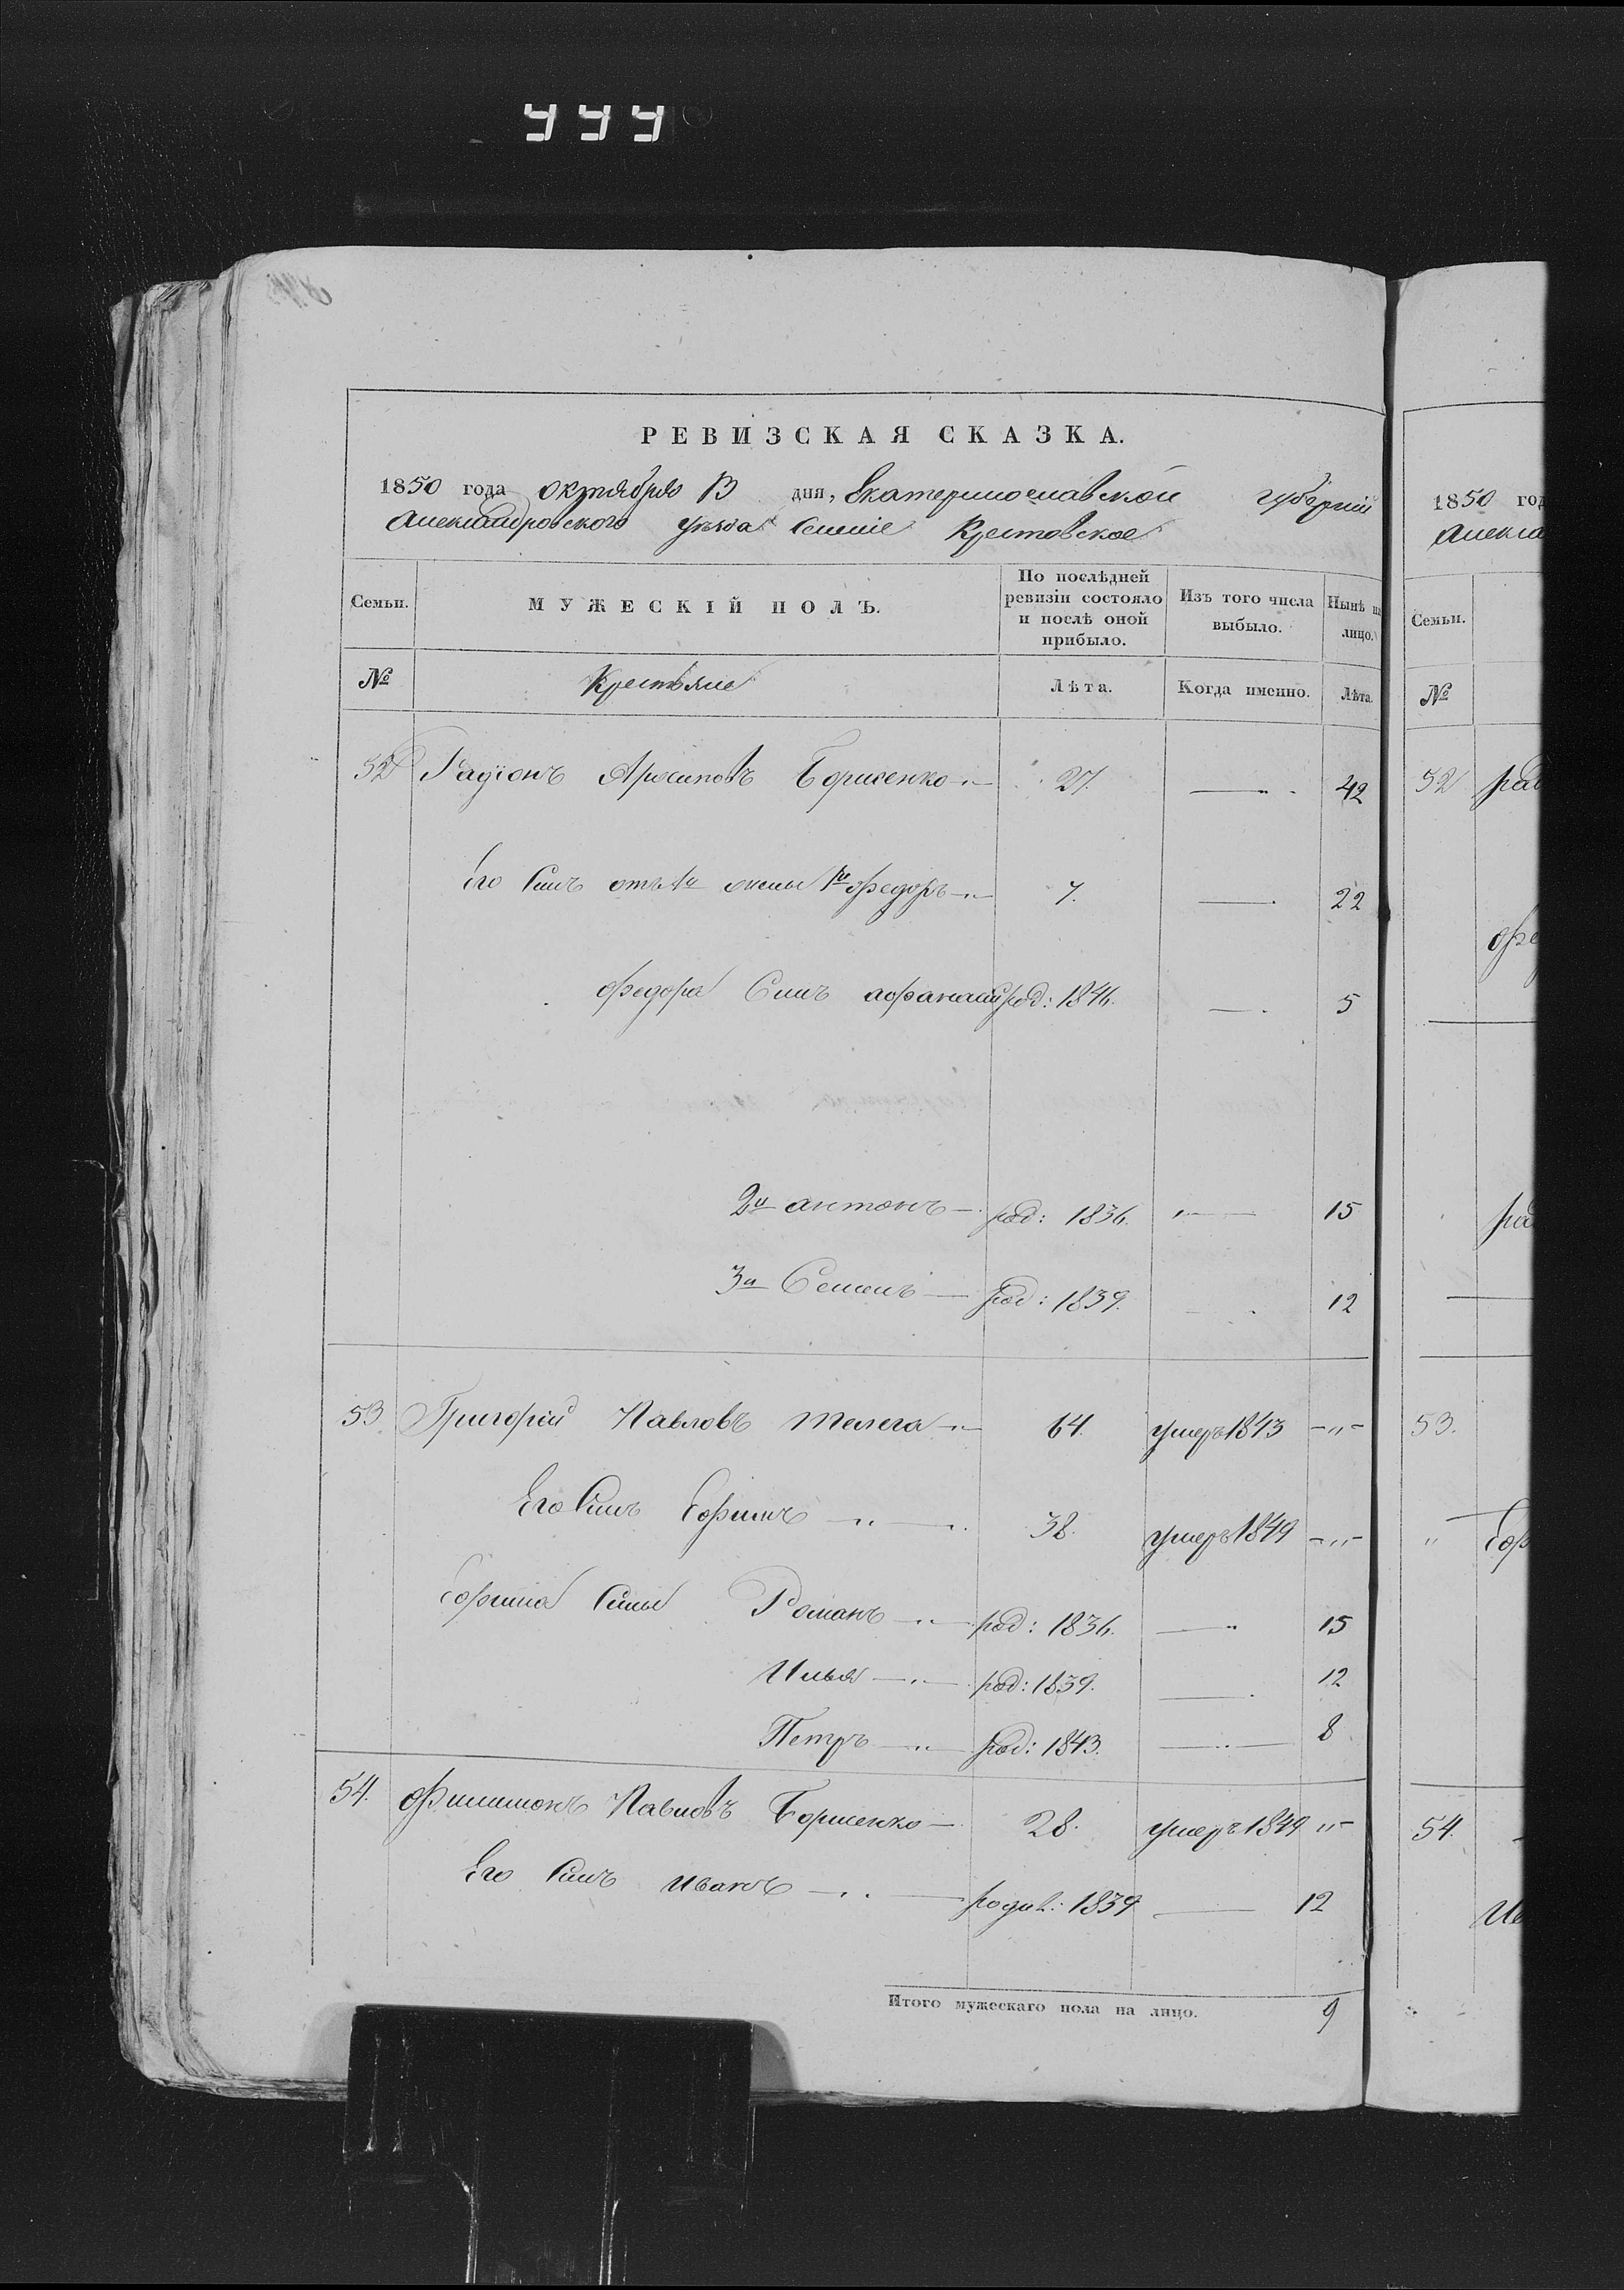 РЕВИЗСКАЯ СКАЗКА.
1850 года октября 13 дня, Екатеринославской губерніи
Александровского уезда Селеніе Крестовское
Семьи. МУЖЕСКІЙ ПОЛЪ. По послѣдней ревизіи состояло и послѣ оной прибыло. Изъ того числа выбыло. Нынѣ на лицо.
№ Крестьяне Лѣта. Когда именно. Лѣта.
52 Радіонъ Борисенко 27. 42
Его Сынъ отъ 1й жены 1й Федоръ 7. 22
Федора Сынъ Афанасій род: 1846. 5
2й антонъ род: 1836. 15
3й Семенъ род: 1839. 12
53 Григорій Павловъ телега 64. умеръ 1843
Его Сынъ Ефимъ 38. умеръ 1849
Ефима Сины Романъ род: 1836. 15
Илья род: 1839. 12
Петръ род: 1843. 8
54. Филимонъ Павловъ Борисенко 28. умеръ 1849
Его Сынъ иванъ родил: 1839 12
Итого мужескаго пола на лицо. 9
1850 год
Алекса
Семьи.
№
52 рад
фе
рад
53.
Еф
54.
Ив